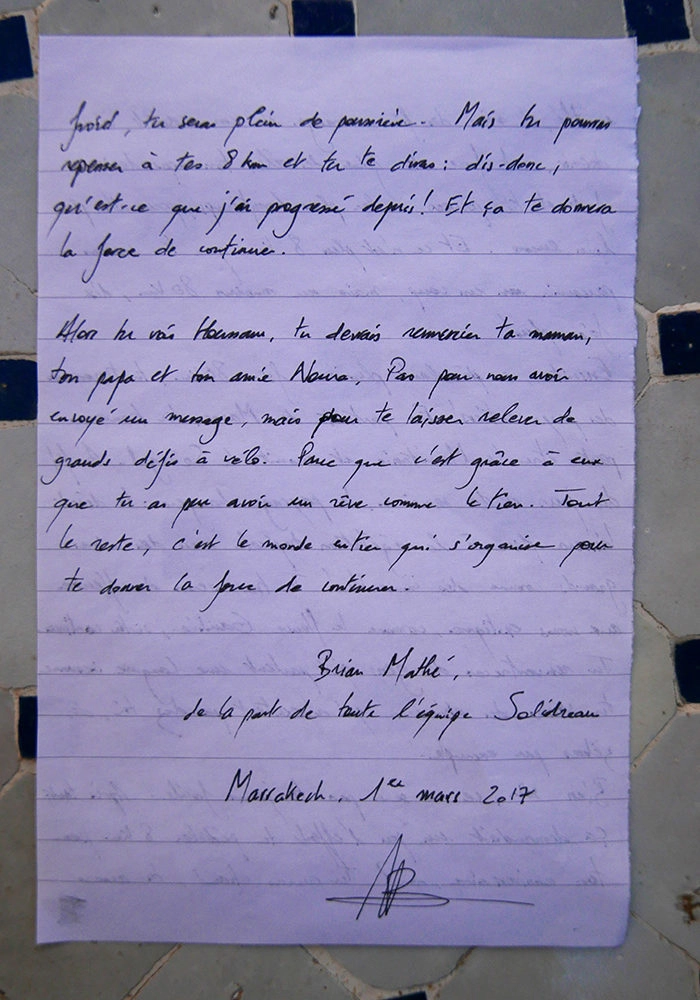 froid, tu seras plein de poussière. Mais tu pourras
repenser à tes 8 km et tu te diras : dis-donc,
qu'est-ce que j'ai progressé depuis ! Et ça te donnera
la force de continuer.
Alors tu vois, tu devrais remercier ta maman,
ton papa et ton amie Noura, Pas pour nous avoir
envoyé un message, mais pour te laisser relever de
grands défis à vélo. Parce que c'est grâce à eux
que tu as pu avoir un rêve comme le tien. Tout
le reste, c'est le monde entier qui s'organise pour
te donner la force de continuer.
Brian Mathé,
de la part de toute l'équipe Solidream
Marrakech, 1er mars 2017